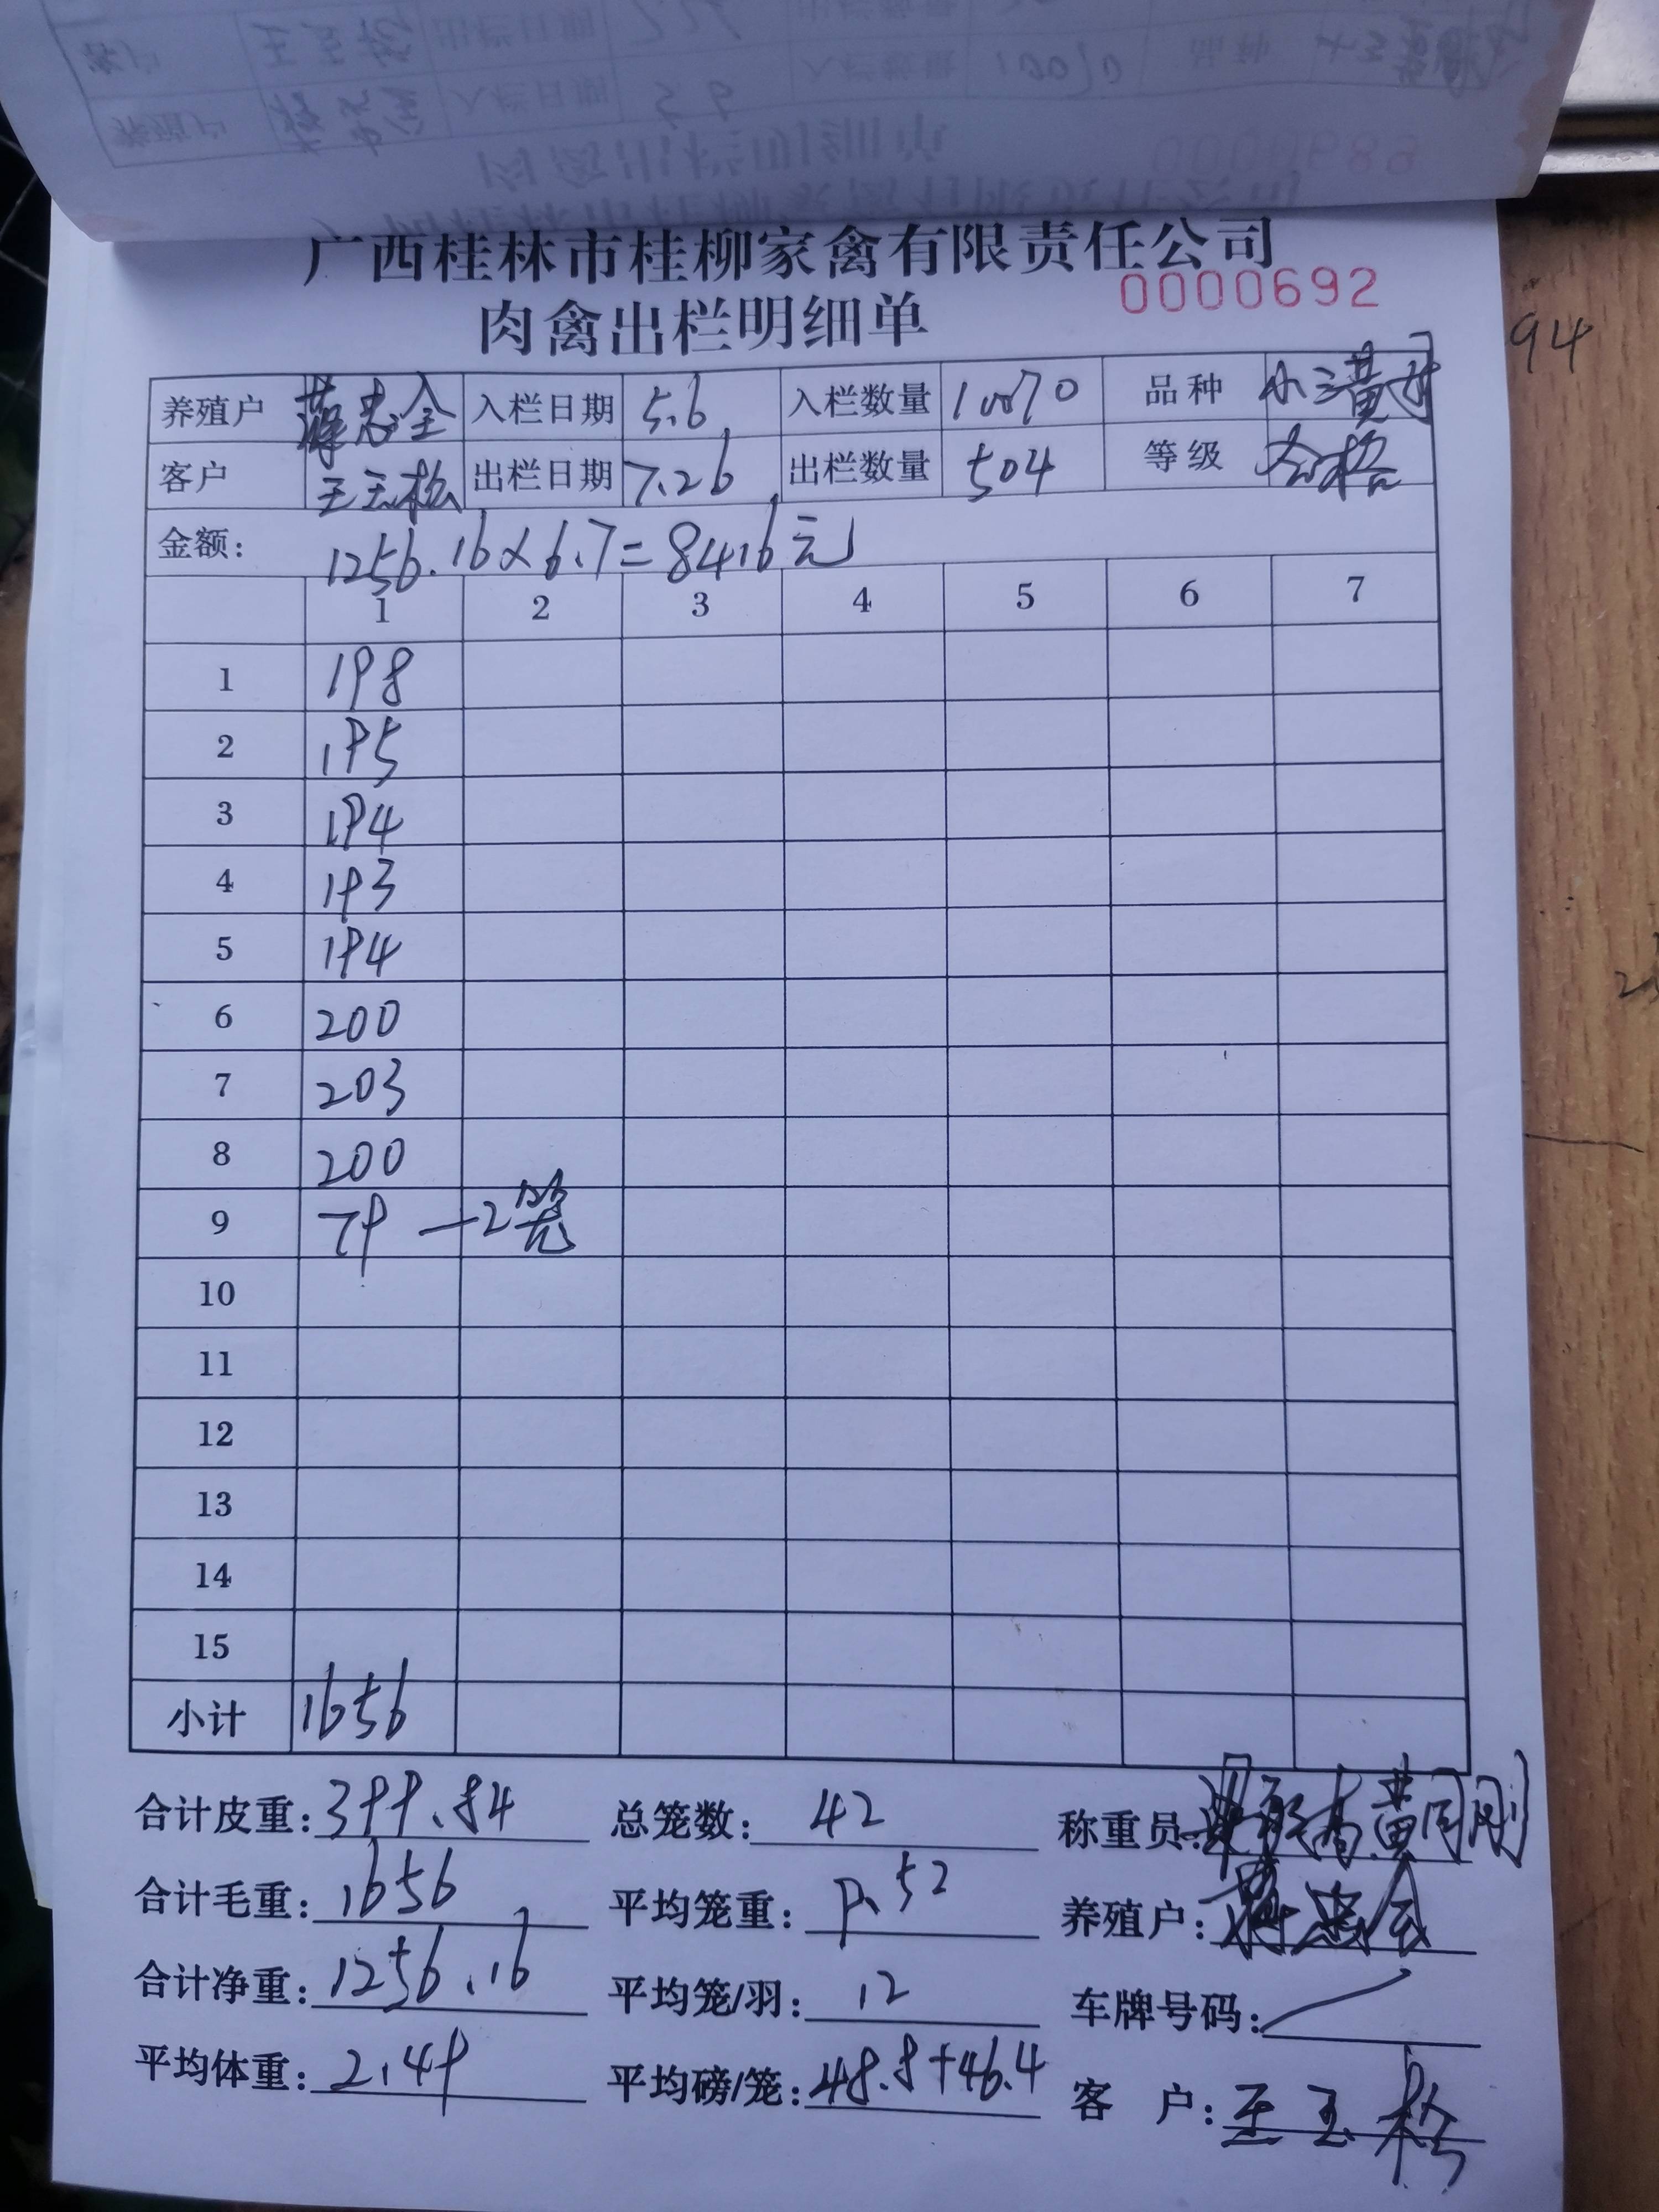 广西桂林市桂柳家禽有限责任公司
0000692
肉禽出栏明细单
94
养殖户 蒋忠全 入栏日期 5.6 入栏数量 10070 品种 小三黄
客户 王玉松 出栏日期 7.26 出栏数量 504 等级 合格
金额: 1256.16×6.7=8416元
1 2 3 4 5 6 7
1 198
2 195
3 194
4 193
5 194
6 200
7 203
8 200
9 79 —2笼
10
11
12
13
14
15
小计 1656
合计皮重: 399.84 总笼数: 42 称重员: 黄同刚
合计毛重: 1656 平均笼重: 9.52 养殖户: 蒋忠全
合计净重: 1256.16 平均笼/羽: 12 车牌号码: /
平均体重: 2.49 平均磅/笼: 48.8+46.4 客 户: 王玉松